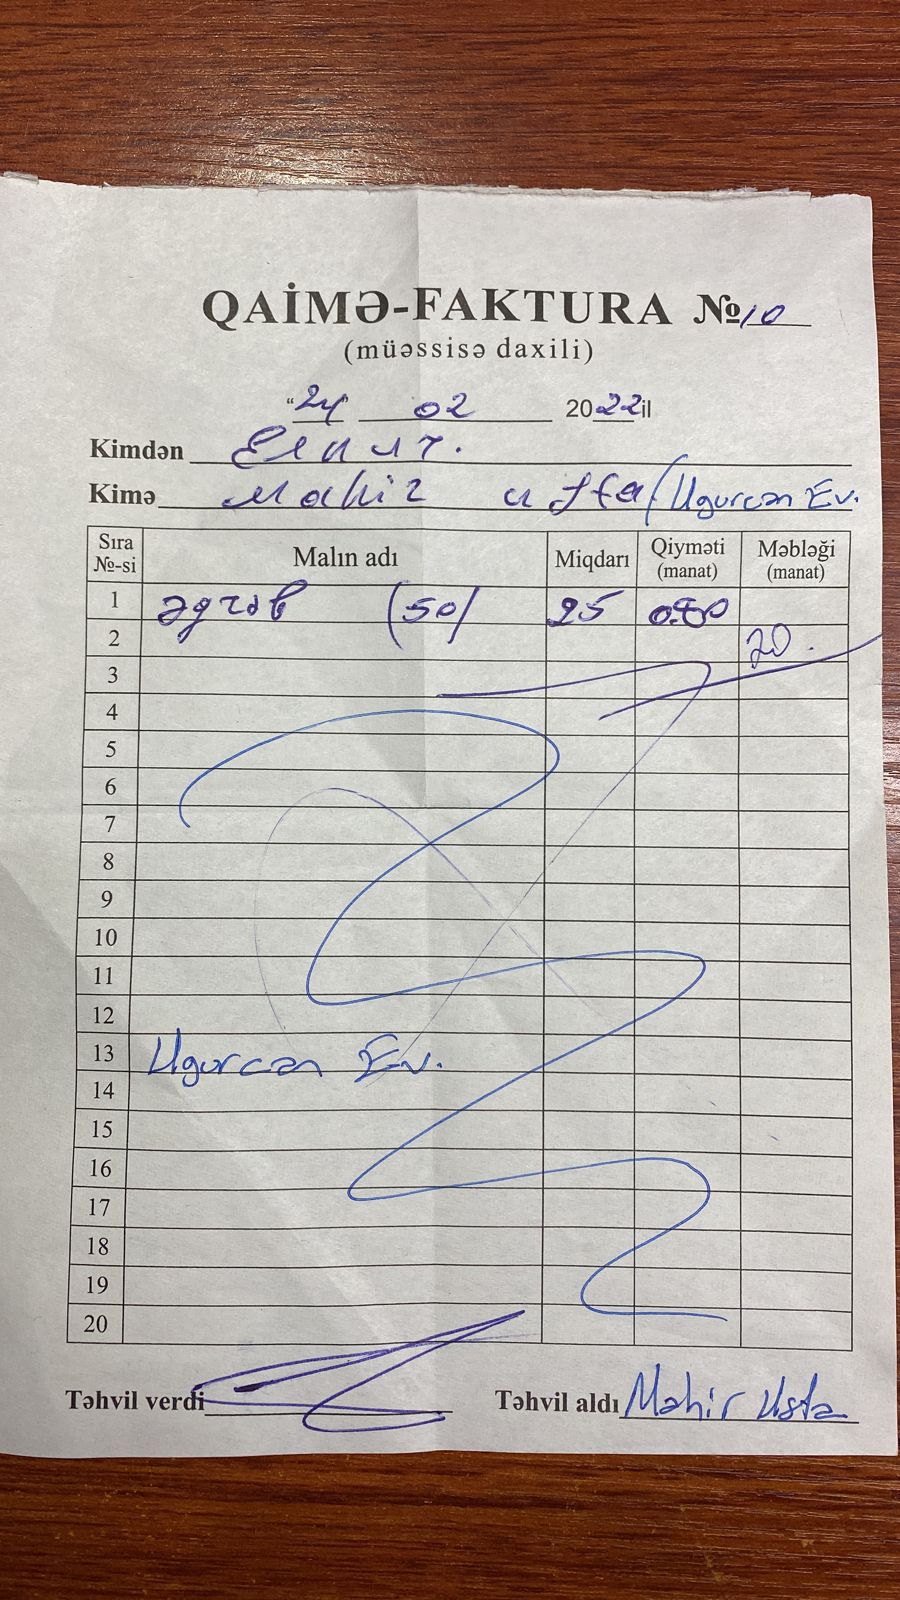 QAİMƏ-FAKTURA №10
(müəssisə daxili)
"24" 02 2022il
Kimdən Elnur.
Kimə Mahir usta/Ugurcan Ev.
Sıra №-si Malın adı Miqdarı Qiyməti (manat) Məbləği (manat)
1 əqrəb (50) 25 0.80
2 20.
3
4
5
6
7
8
9
10
11
12
13 Ugurcan Ev.
14
15
16
17
18
19
20
Təhvil verdi Təhvil aldı Mahir Usta